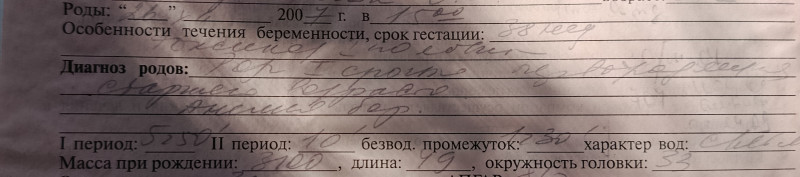 Роды: “ ” 2007 г. в 1500
Особенности течения беременности, срок гестации: 38 нед
Токсикоз I половины
Диагноз родов: I срочные
старшего возраста
Анемия бер.
I период: 5 50' II период: 10' безвод. промежуток: 1 30' характер вод:
Масса при рождении: 3100, длина: 49, окружность головки: 33